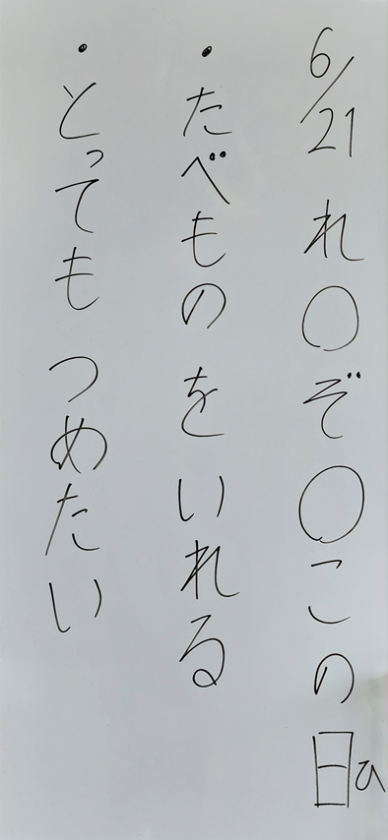 6/21 れ〇ぞ〇この日ひ
・たべものをいれる
・とってもつめたい